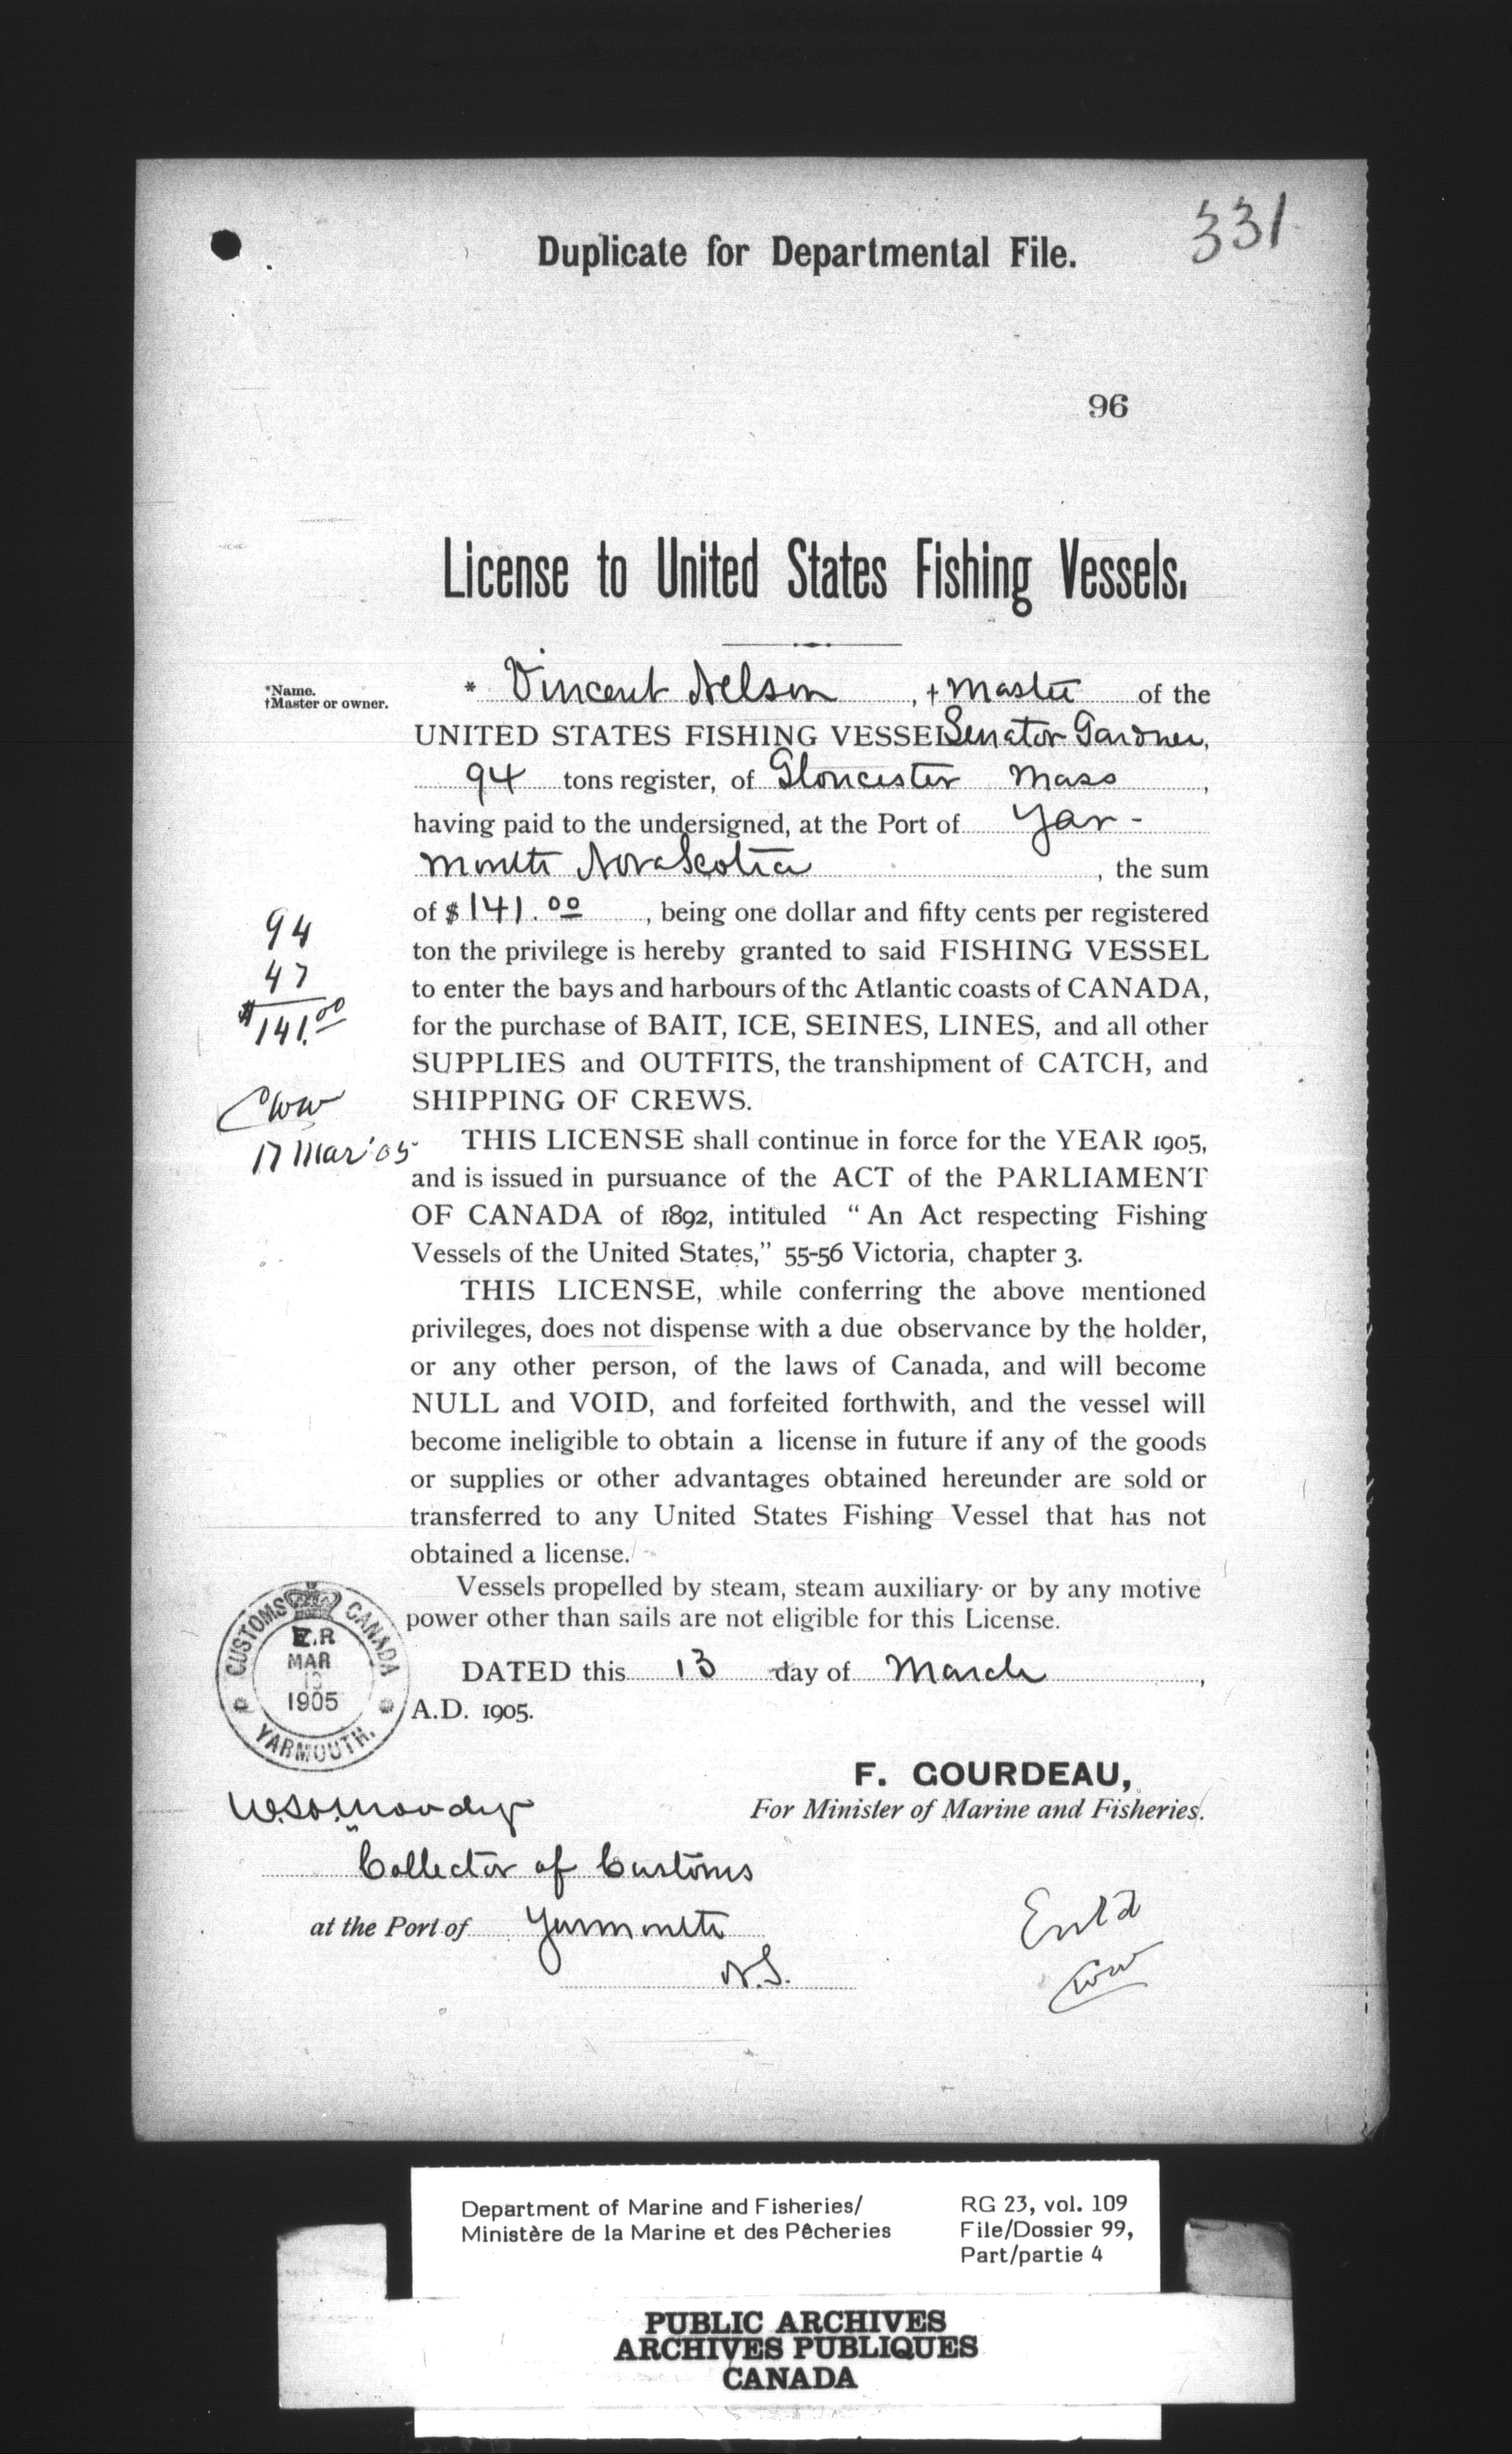 331
Duplicate for Departmental File.
96
License to United States Fishing Vessels.
*Name.
†Master or owner.
* Vincent Nelson, † Master of the
UNITED STATES FISHING VESSEL Senator Gardner,
94 tons register, of Gloucester Mass,
having paid to the undersigned, at the Port of Yar-
mouth Nova Scotia, the sum
of $141.00, being one dollar and fifty cents per registered
ton the privilege is hereby granted to said FISHING VESSEL
to enter the bays and harbours of the Atlantic coasts of CANADA,
for the purchase of BAIT, ICE, SEINES, LINES, and all other
SUPPLIES and OUTFITS, the transhipment of CATCH, and
SHIPPING OF CREWS.
94
47
$141.00
CWW
17 Mar '05
THIS LICENSE shall continue in force for the YEAR 1905,
and is issued in pursuance of the ACT of the PARLIAMENT
OF CANADA of 1892, intituled "An Act respecting Fishing
Vessels of the United States," 55-56 Victoria, chapter 3.
THIS LICENSE, while conferring the above mentioned
privileges, does not dispense with a due observance by the holder,
or any other person, of the laws of Canada, and will become
NULL and VOID, and forfeited forthwith, and the vessel will
become ineligible to obtain a license in future if any of the goods
or supplies or other advantages obtained hereunder are sold or
transferred to any United States Fishing Vessel that has not
obtained a license.
Vessels propelled by steam, steam auxiliary or by any motive
power other than sails are not eligible for this License.
DATED this 13 day of March,
A.D. 1905.
CUSTOMS CANADA
E.R
MAR
13
1905
YARMOUTH.
F. GOURDEAU,
For Minister of Marine and Fisheries.
Collector of Customs
at the Port of Yarmouth
N.S.
Ent'd
CWW
Department of Marine and Fisheries/
Ministère de la Marine et des Pêcheries
RG 23, vol. 109
File/Dossier 99,
Part/partie 4
PUBLIC ARCHIVES
ARCHIVES PUBLIQUES
CANADA